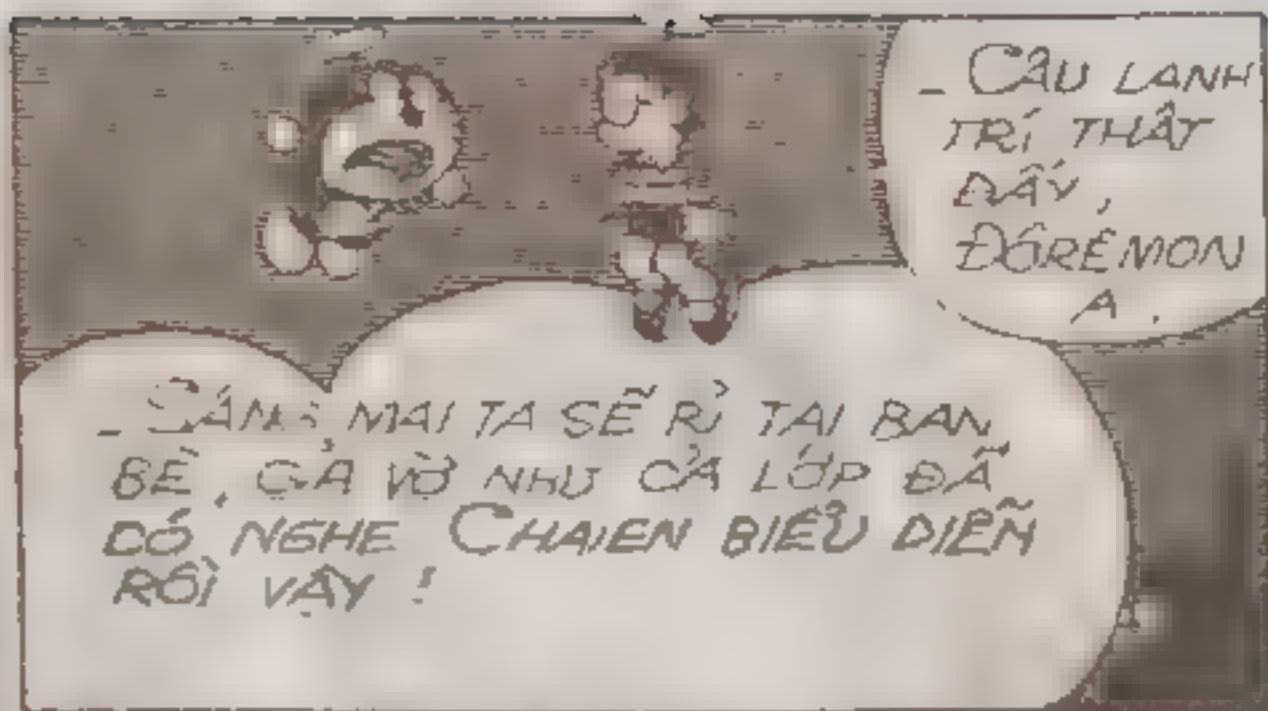 - CẬU LANH
TRÍ THẬT
ĐẤY,
ĐÔRÊMON
Ạ.
- SÁNG MAI TA SẼ RỈ TAI BẠN
BÈ, GIẢ VỜ NHƯ CẢ LỚP ĐÃ
CÓ NGHE CHAIEN BIỂU DIỄN
RỒI VẬY !